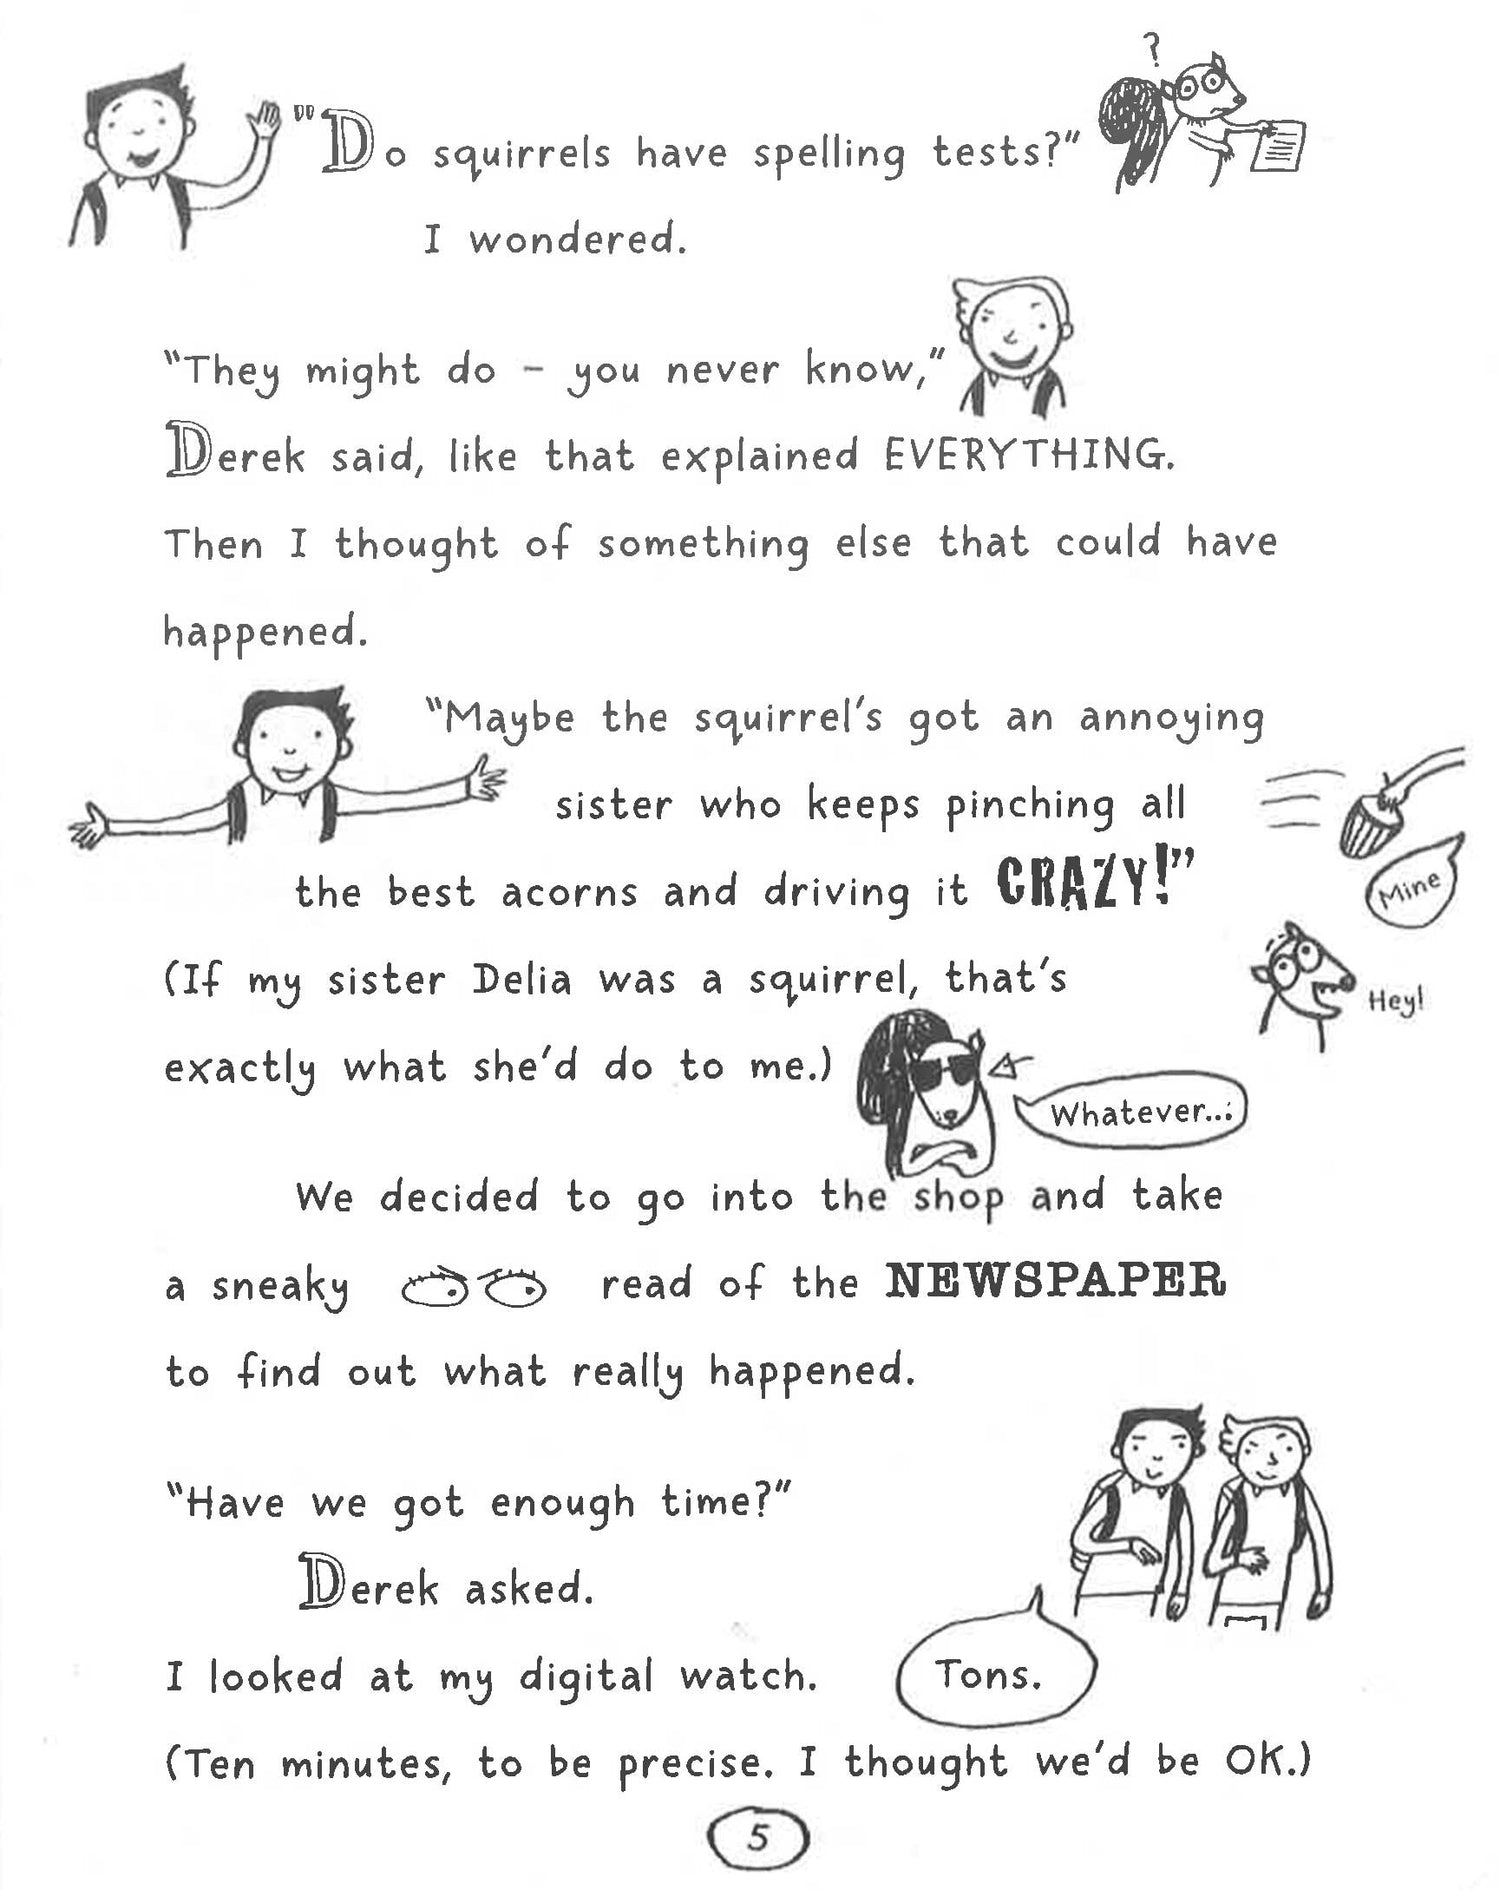 ?
"Do squirrels have spelling tests?"
I wondered.
"They might do – you never know,"
Derek said, like that explained EVERYTHING.
Then I thought of something else that could have
happened.
"Maybe the squirrel's got an annoying
sister who keeps pinching all
the best acorns and driving it CRAZY!"
Mine
(If my sister Delia was a squirrel, that's
Hey!
exactly what she'd do to me.)
Whatever...
We decided to go into the shop and take
a sneaky read of the NEWSPAPER
to find out what really happened.
"Have we got enough time?"
Derek asked.
I looked at my digital watch.
Tons.
(Ten minutes, to be precise. I thought we'd be OK.)
5